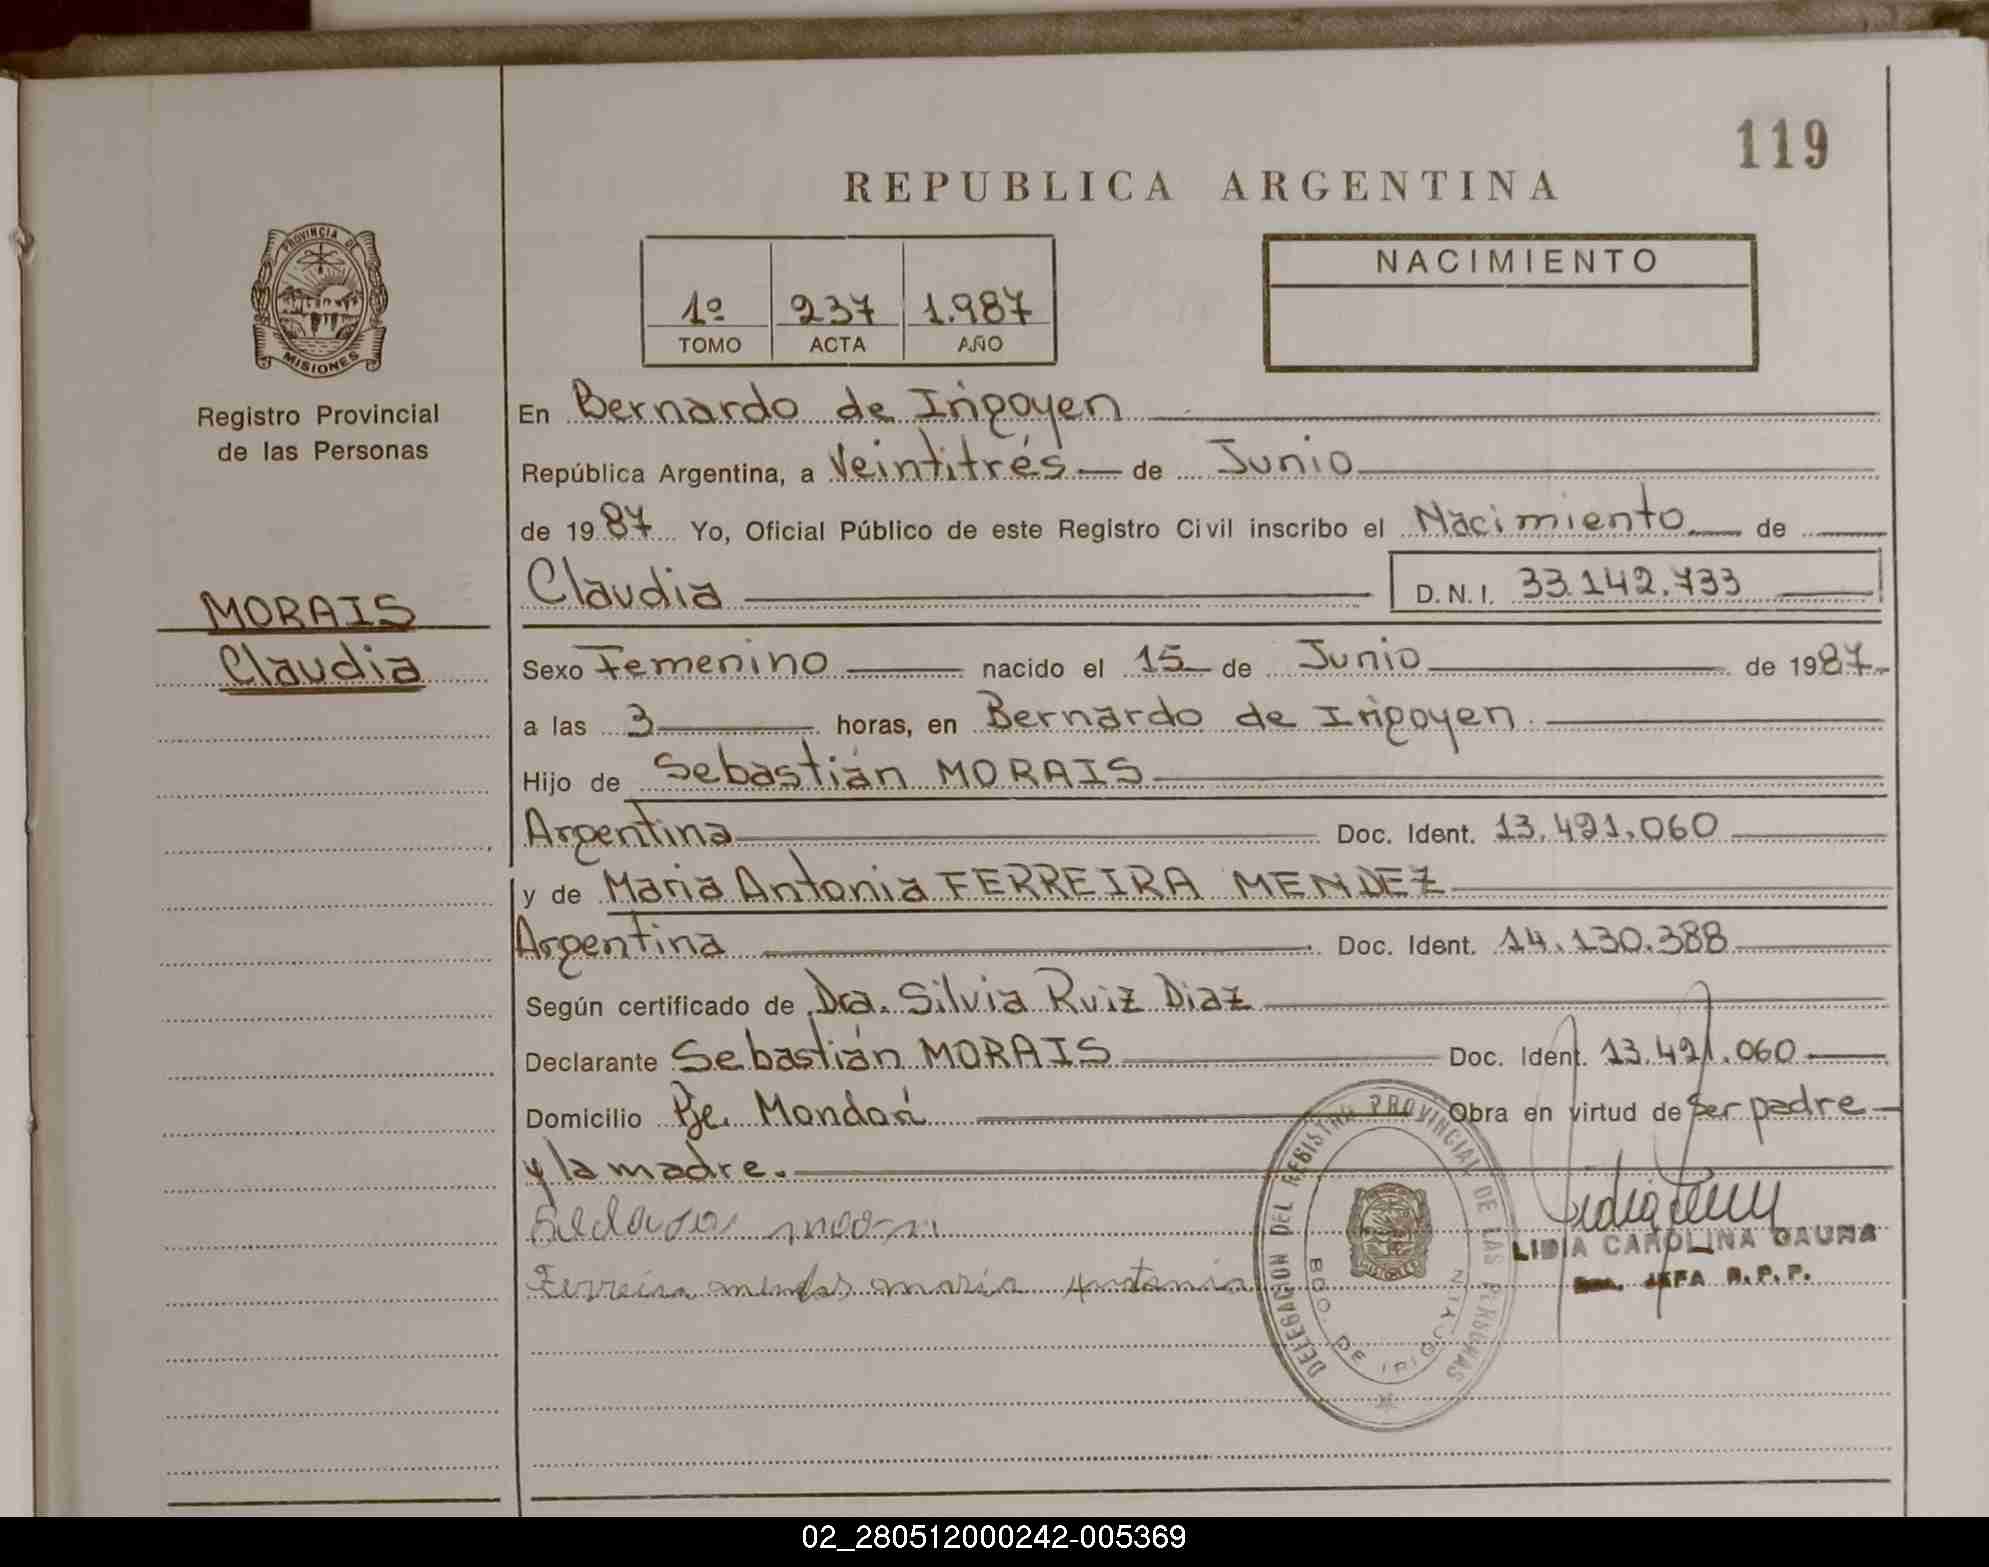 119
REPUBLICA ARGENTINA
PROVINCIA DE
MISIONES
Registro Provincial
de las Personas
1º 237 1.987
TOMO ACTA AÑO
NACIMIENTO
En Bernardo de Irigoyen
República Argentina, a Veintitrés de Junio
de 1987 Yo, Oficial Público de este Registro Civil inscribo el Nacimiento de
Claudia D.N.I. 33.142.733
MORAIS
Claudia
Sexo Femenino nacido el 15 de Junio de 1987
a las 3 horas, en Bernardo de Irigoyen
Hijo de Sebastián MORAIS
Argentina Doc. Ident. 13.491.060
y de Maria Antonia FERREIRA MENDEZ
Argentina Doc. Ident. 14.130.388
Según certificado de Dra. Silvia Ruiz Diaz
Declarante Sebastián MORAIS Doc. Ident. 13.491.060
Domicilio Pje. Mondorí Obra en virtud de Ser padre
y la madre.
Ferreira mendes maria Antonia
DELEGACION DEL REGISTRO PROVINCIAL DE LAS PERSONAS
BDO. DE IRIGOYEN
LIDIA CAROLINA GAUNA
JEFA R.P.P.
02_280512000242-005369